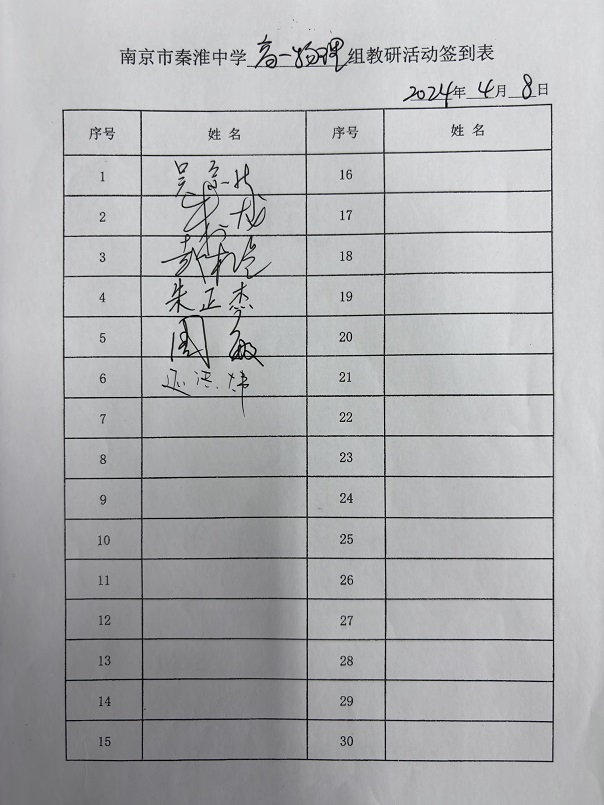 南京市秦淮中学高一物理组教研活动签到表
2024年4月8日
序号 姓名 序号 姓名
1 16
2 17
3 18
4 朱正杰 19
5 周敏 20
6 21
7 22
8 23
9 24
10 25
11 26
12 27
13 28
14 29
15 30